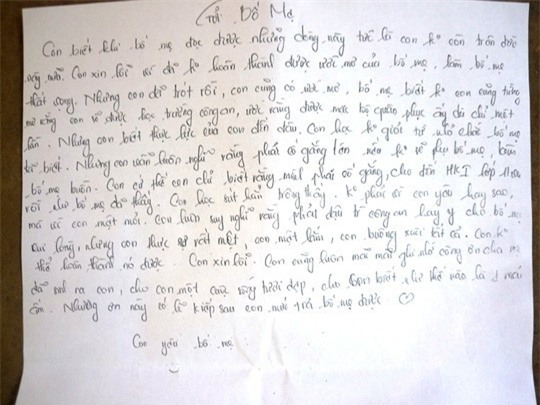 Gửi Bố Mẹ
Con biết khi bố mẹ đọc được những dòng này tức là con k° còn trên đời
này nữa. Con xin lỗi vì đã k° hoàn thành được ước mơ của bố mẹ, làm bố mẹ
thất vọng. Nhưng con đã trót rồi, con cũng có ước mơ, bố mẹ biết k° con cũng từng
mơ rằng con sẽ được học trường công an, ước rằng được mặc bộ quân phục ấy dù chỉ một
lần. Nhưng con biết thực lực của con đến đâu. Con học k° giỏi từ nhỏ chắc bố mẹ
đã biết. Nhưng con luôn luôn nghĩ rằng phải cố gắng lên nếu k° sẽ phụ bố mẹ, làm
bố mẹ buồn. Con có thể con chỉ biết rằng mình phải cố gắng, cho đến HKI lớp
rồi như bố mẹ đã thấy. Con học sút hẳn trông thấy. K° phải vì con yêu hay sao,
mà vì con mệt mỏi. Con luôn suy nghĩ rằng phải đậu trg công an hay y cho bố mẹ
vui lòng, nhưng con thực sự rất mệt, con mệt lắm, con buông xuôi tất cả. Con k°
thể hoàn thành nó được. Con xin lỗi. Con cũng luôn mãi mãi ghi nhớ công ơn cha mẹ
đã sinh ra con, cho con một cuộc sống tươi đẹp, cho con biết như thế nào là mái
ấm. Nhưng ơn này có lẽ kiếp sau con mới trả bố mẹ được ♡
Con yêu bố mẹ